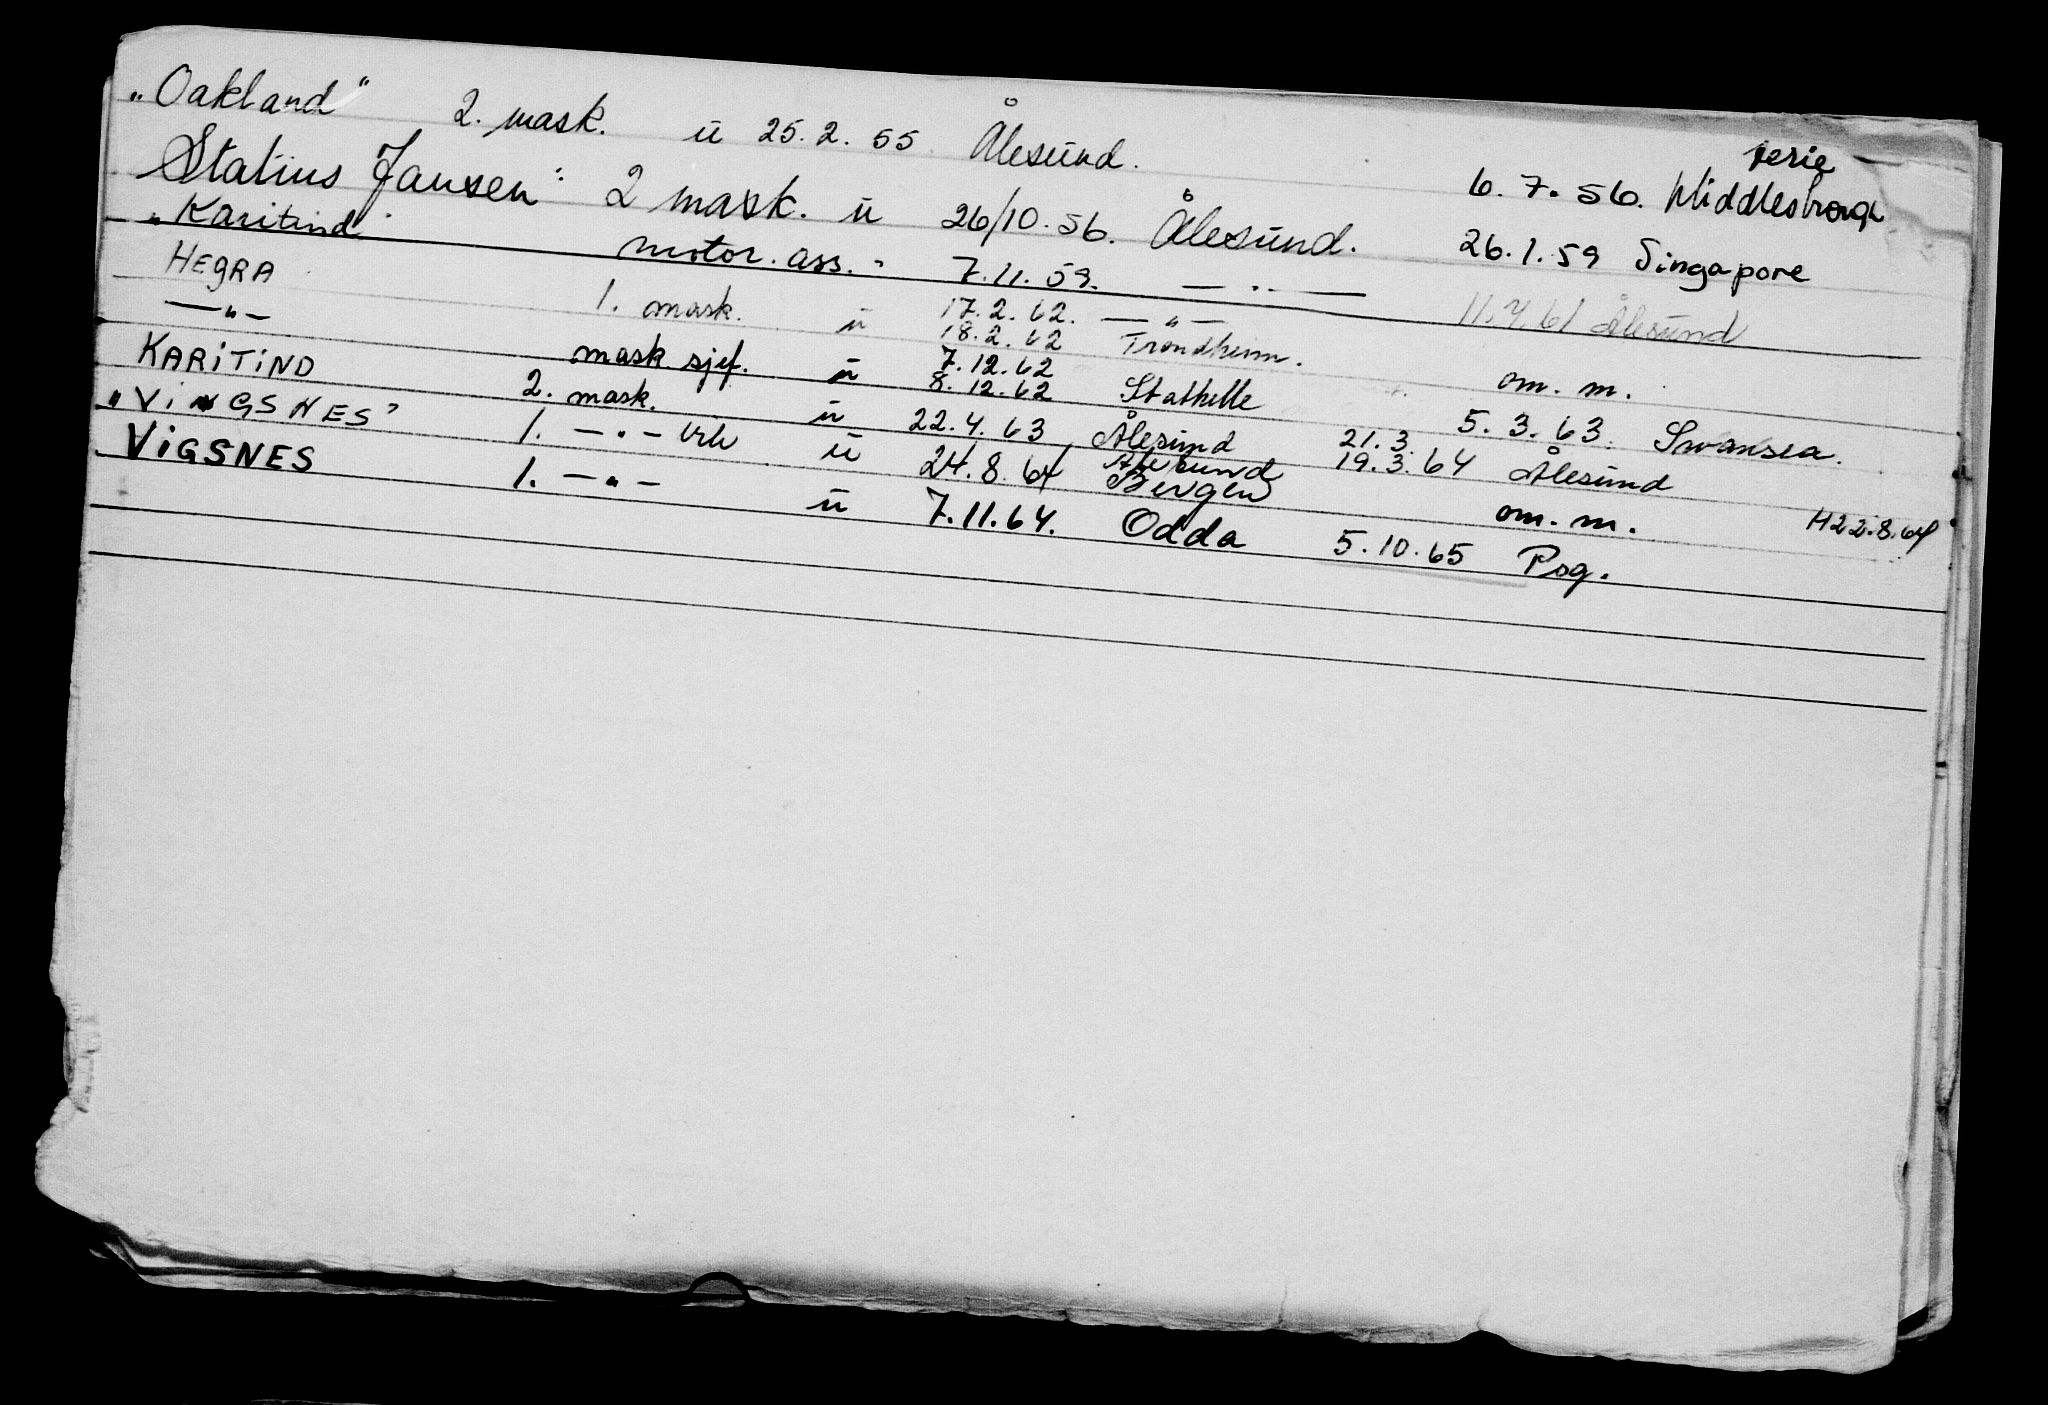 „Oakland" 2. mask. u 25.2.55 Ålesund. ferie 6.7.56. Middlesbrough
Statius Jansen" 2 mask. u 26/10.56. Ålesund. 26.1.59 Singapore
„Karitind motor. ass. " 7.11.59. — " — 11.4.61 Ålesund
HEGRA 1. mask. u 17.2.62. — " —
18.2.62 Trondheim.
— " — mask sjef. u 7.12.62
8.12.62 Stathelle om. m.
KARITIND 2. mask. u 22.4.63 Ålesund 5.3.63. Swansea.
„VINGSNES" 1. — " — u 24.8.64 Ålesund 21.3. 19.3.64 Ålesund
Bergen om. m. H22.8.64
VIGSNES 1. — " — u 7.11.64. Odda 5.10.65 Psg.